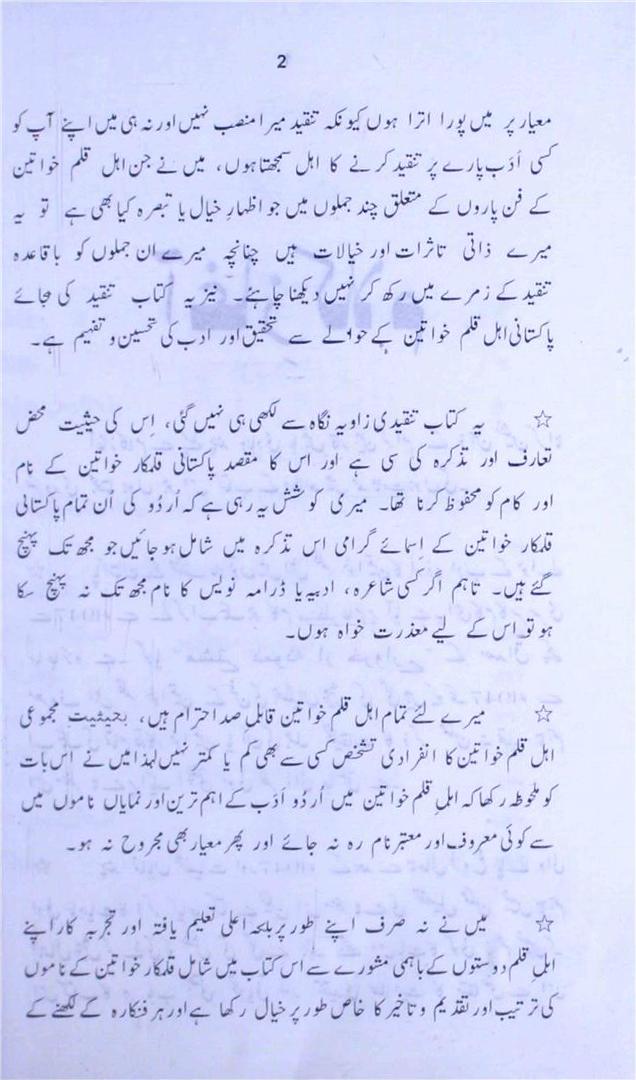 2
معیار پر میں پورا اترا ہوں کیونکہ تنقید میرا منصب نہیں اور نہ ہی میں اپنے آپ کو
کسی اَدَب پارے پر تنقید کرنے کا اہل سمجھتا ہوں، میں نے جن اہل قلم خواتین
کے فن پاروں کے متعلق چند جملوں میں جو اظہارِ خیال یا تبصرہ کیا بھی ہے تو یہ
میرے ذاتی تاثرات اور خیالات ہیں چنانچہ میرے ان جملوں کو باقاعدہ
تنقید کے زمرے میں رکھ کر نہیں دیکھنا چاہئے۔ نیز یہ کتاب تنقید کی بجائے
پاکستانی اہل قلم خواتین کے حوالے سے تحقیق اور ادب کی تحسین و تفہیم ہے۔
☆ یہ کتاب تنقیدی زاویہ نگاہ سے لکھی ہی نہیں گئی، اس کی حیثیت محض
تعارف اور تذکرہ کی سی ہے اور اس کا مقصد پاکستانی قلمکار خواتین کے نام
اور کام کو محفوظ کرنا تھا۔ میری کوشش یہ رہی ہے کہ اُردُو کی اُن تمام پاکستانی
قلمکار خواتین کے اِسمائے گرامی اس تذکرہ میں شامل ہو جائیں جو مجھ تک پہنچ
گئے ہیں۔ تاہم اگر کسی شاعرہ، ادیبہ یا ڈرامہ نویس کا نام مجھ تک نہ پہنچ سکا
ہو تو اس کے لیے معذرت خواہ ہوں۔
☆ میرے لئے تمام اہل قلم خواتین قابل صد احترام ہیں، بحیثیت مجموعی
اہل قلم خواتین کا انفرادی تشخص کسی سے بھی کم یا کمتر نہیں لہذا میں نے اس بات
کو ملحوظ رکھا کہ اہلِ قلم خواتین میں اُردُو اَدَب کے اہم ترین اور نمایاں ناموں میں
سے کوئی معروف اور معتبر نام رہ نہ جائے اور پھر معیار بھی مجروح نہ ہو۔
☆ میں نے نہ صرف اپنے طور پر بلکہ اعلیٰ تعلیم یافتہ اور تجربہ کار اپنے
اہل قلم دوستوں کے باہمی مشورے سے اس کتاب میں شامل قلمکار خواتین کے ناموں
کی ترتیب اور تقدیم و تاخیر کا خاص طور پر خیال رکھا ہے اور ہر فنکارہ کے لکھنے کے